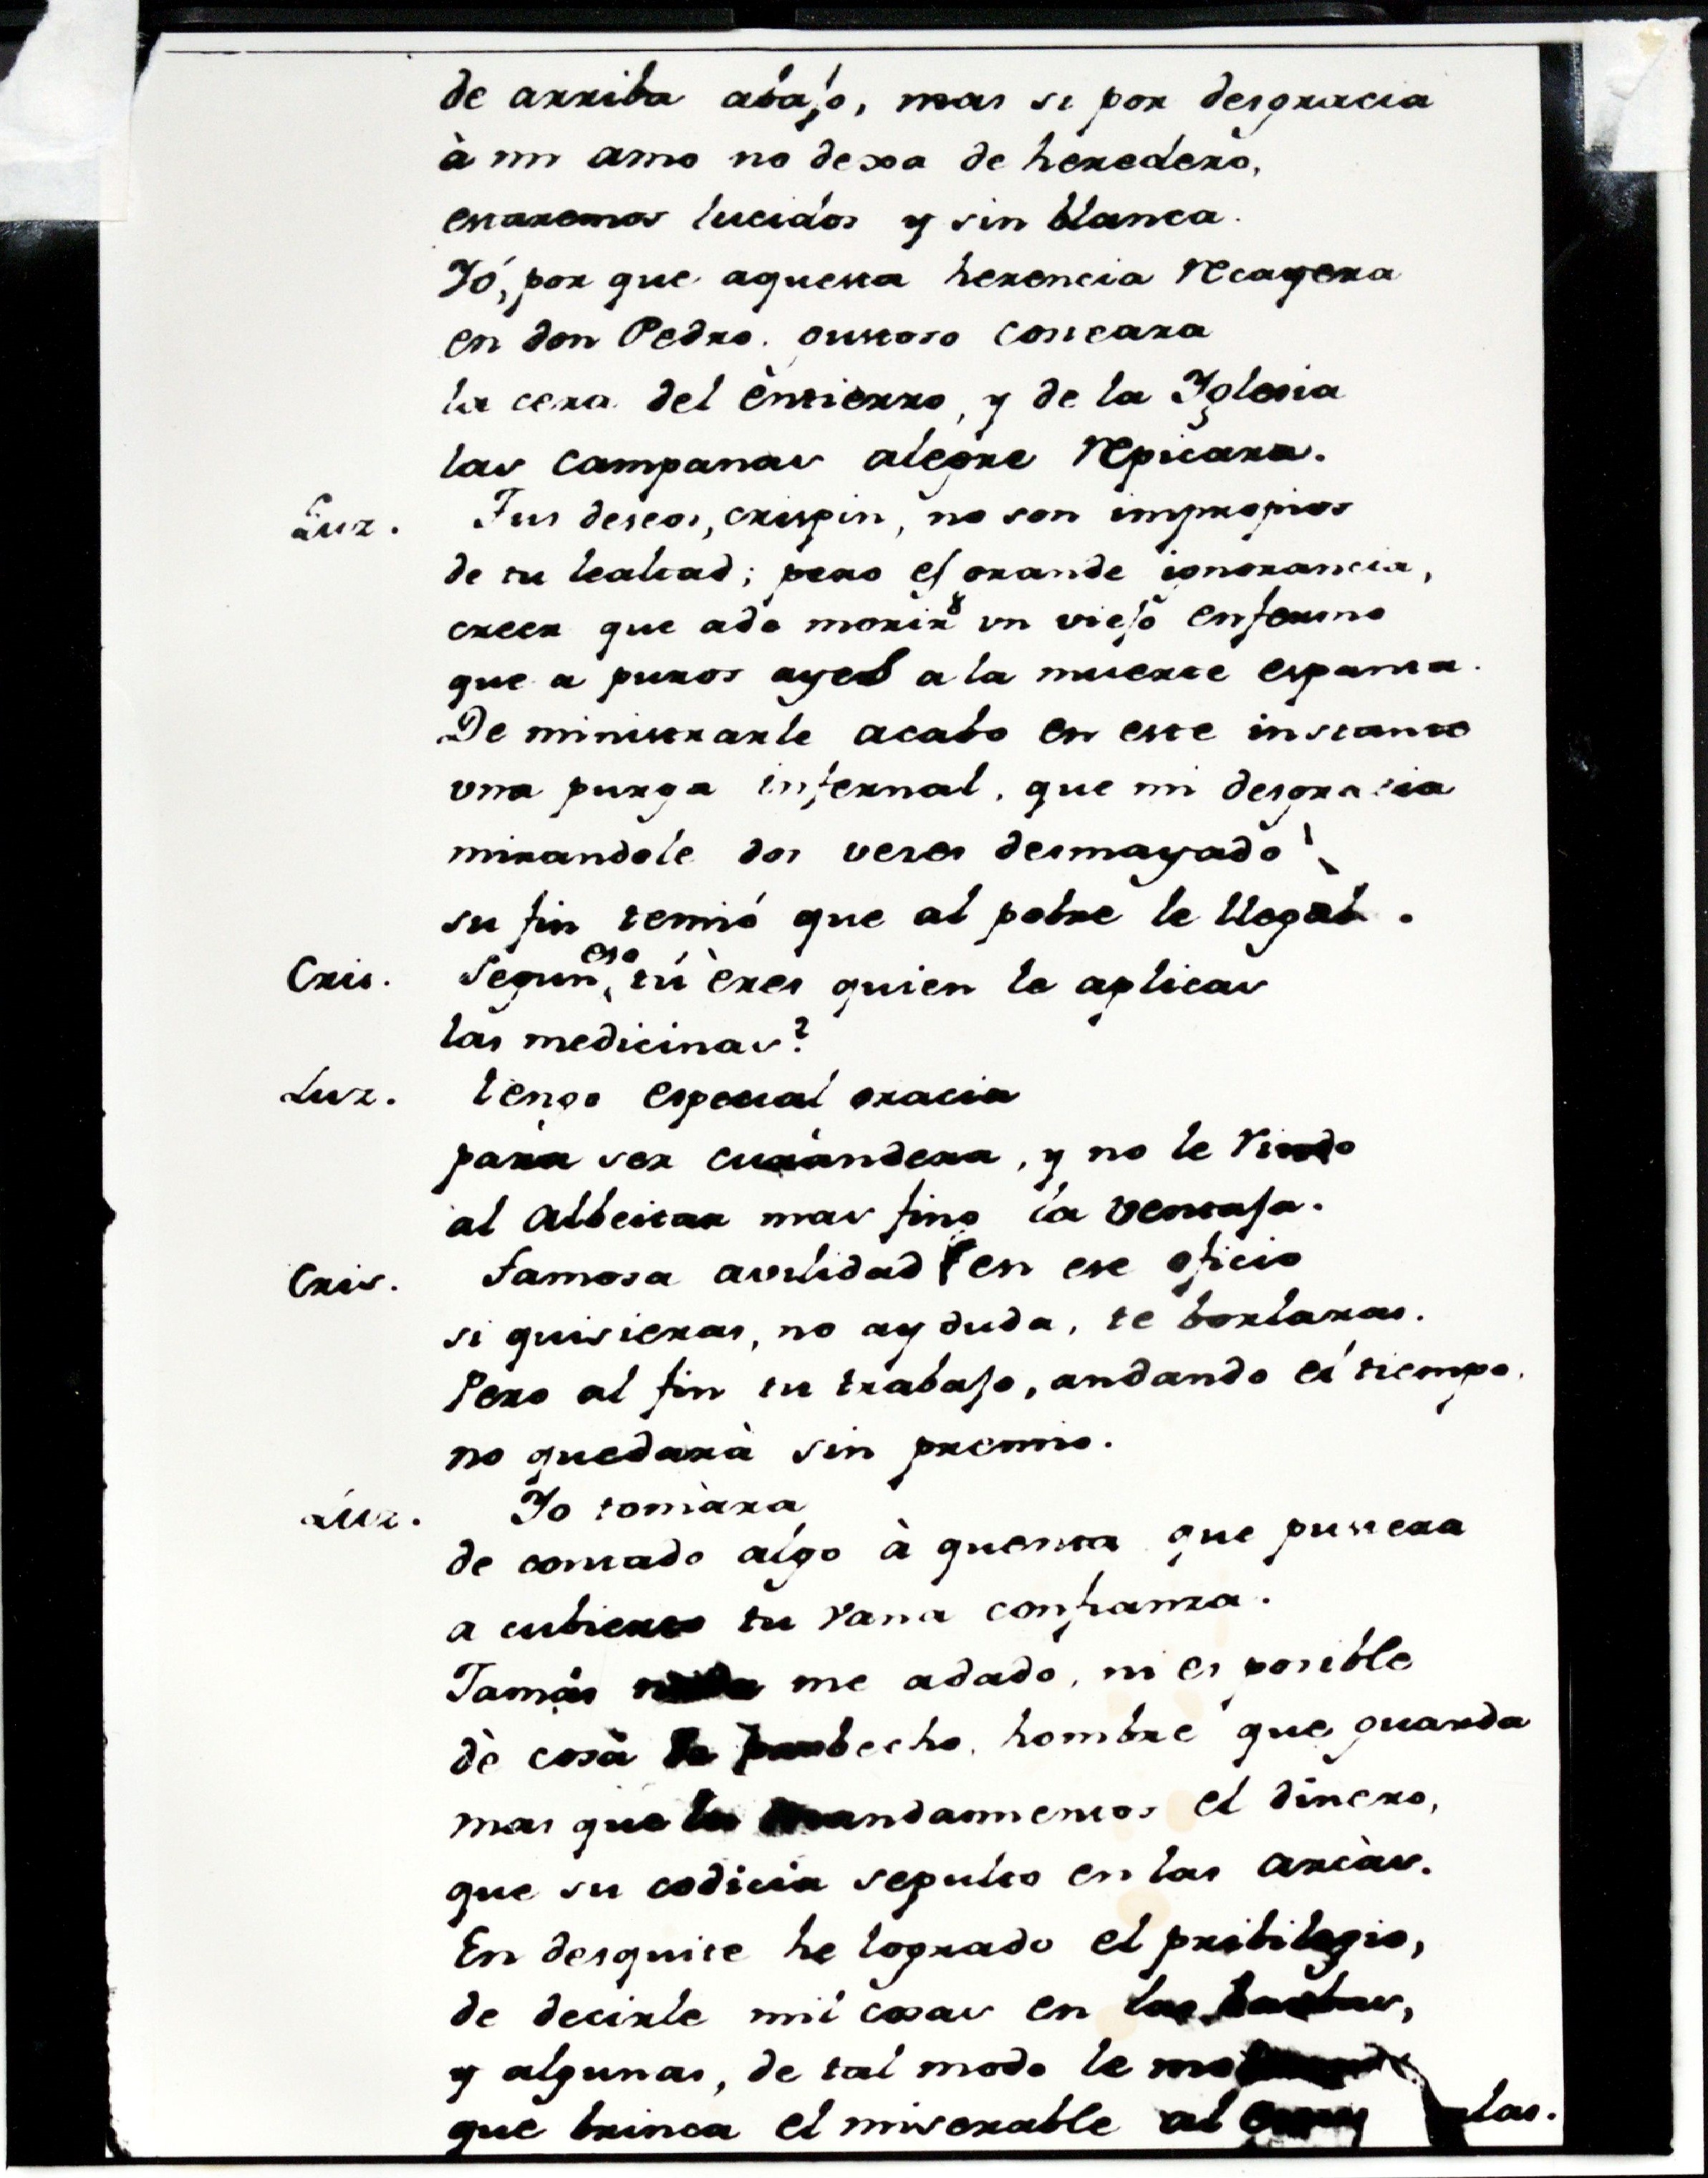 de arriba abajo, mas si por desgracia
à mi amo no dexa de heredero,
estaremos lucidos y sin blanca.
Yó, por que aquesta herencia recayera
en don Pedro, gustoso costeara
la cera del èntierro, y de la Yglesia
las campanas alegre repicara.
Luz. Tus deseos, crispin, no son impropios
de tu lealtad; pero es grande ignorancia,
creer que ade morir un viejo enfermo
que a puros ayes a la muerte espanta.
De ministrarle acabo en este instante
una purga infernal, que mi desgracia
mirandole dos veses desmayado
su fin temió que al pobre le llegab.
Cris. Segun eso, tú ères quien le aplicas
las medicinas?
Luz. tengo especial gracia
para ser curàndera, y no le rindo
al Albeitar mas fino la ventaja.
Cris. famosa avilidad en ese oficio
si quisieras, no ay duda, te borlaras.
Pero al fin tu trabajo, andando el tiempo,
no quedarà sin premio.
Luz. Yo tomàra
de contado algo à quenta que pusiera
a cubierto tu vana confianza.
Jamàs me adado, ni es posible
dè cosà de probecho, hombre que guarda
mas que los mandamientos el dinero,
que su codicia sepulto en las arcàs.
En desquite he logrado el pribilegio,
de decirle mil cosas en las barbas,
y algunas, de tal modo le
que brinca el miserable al las.